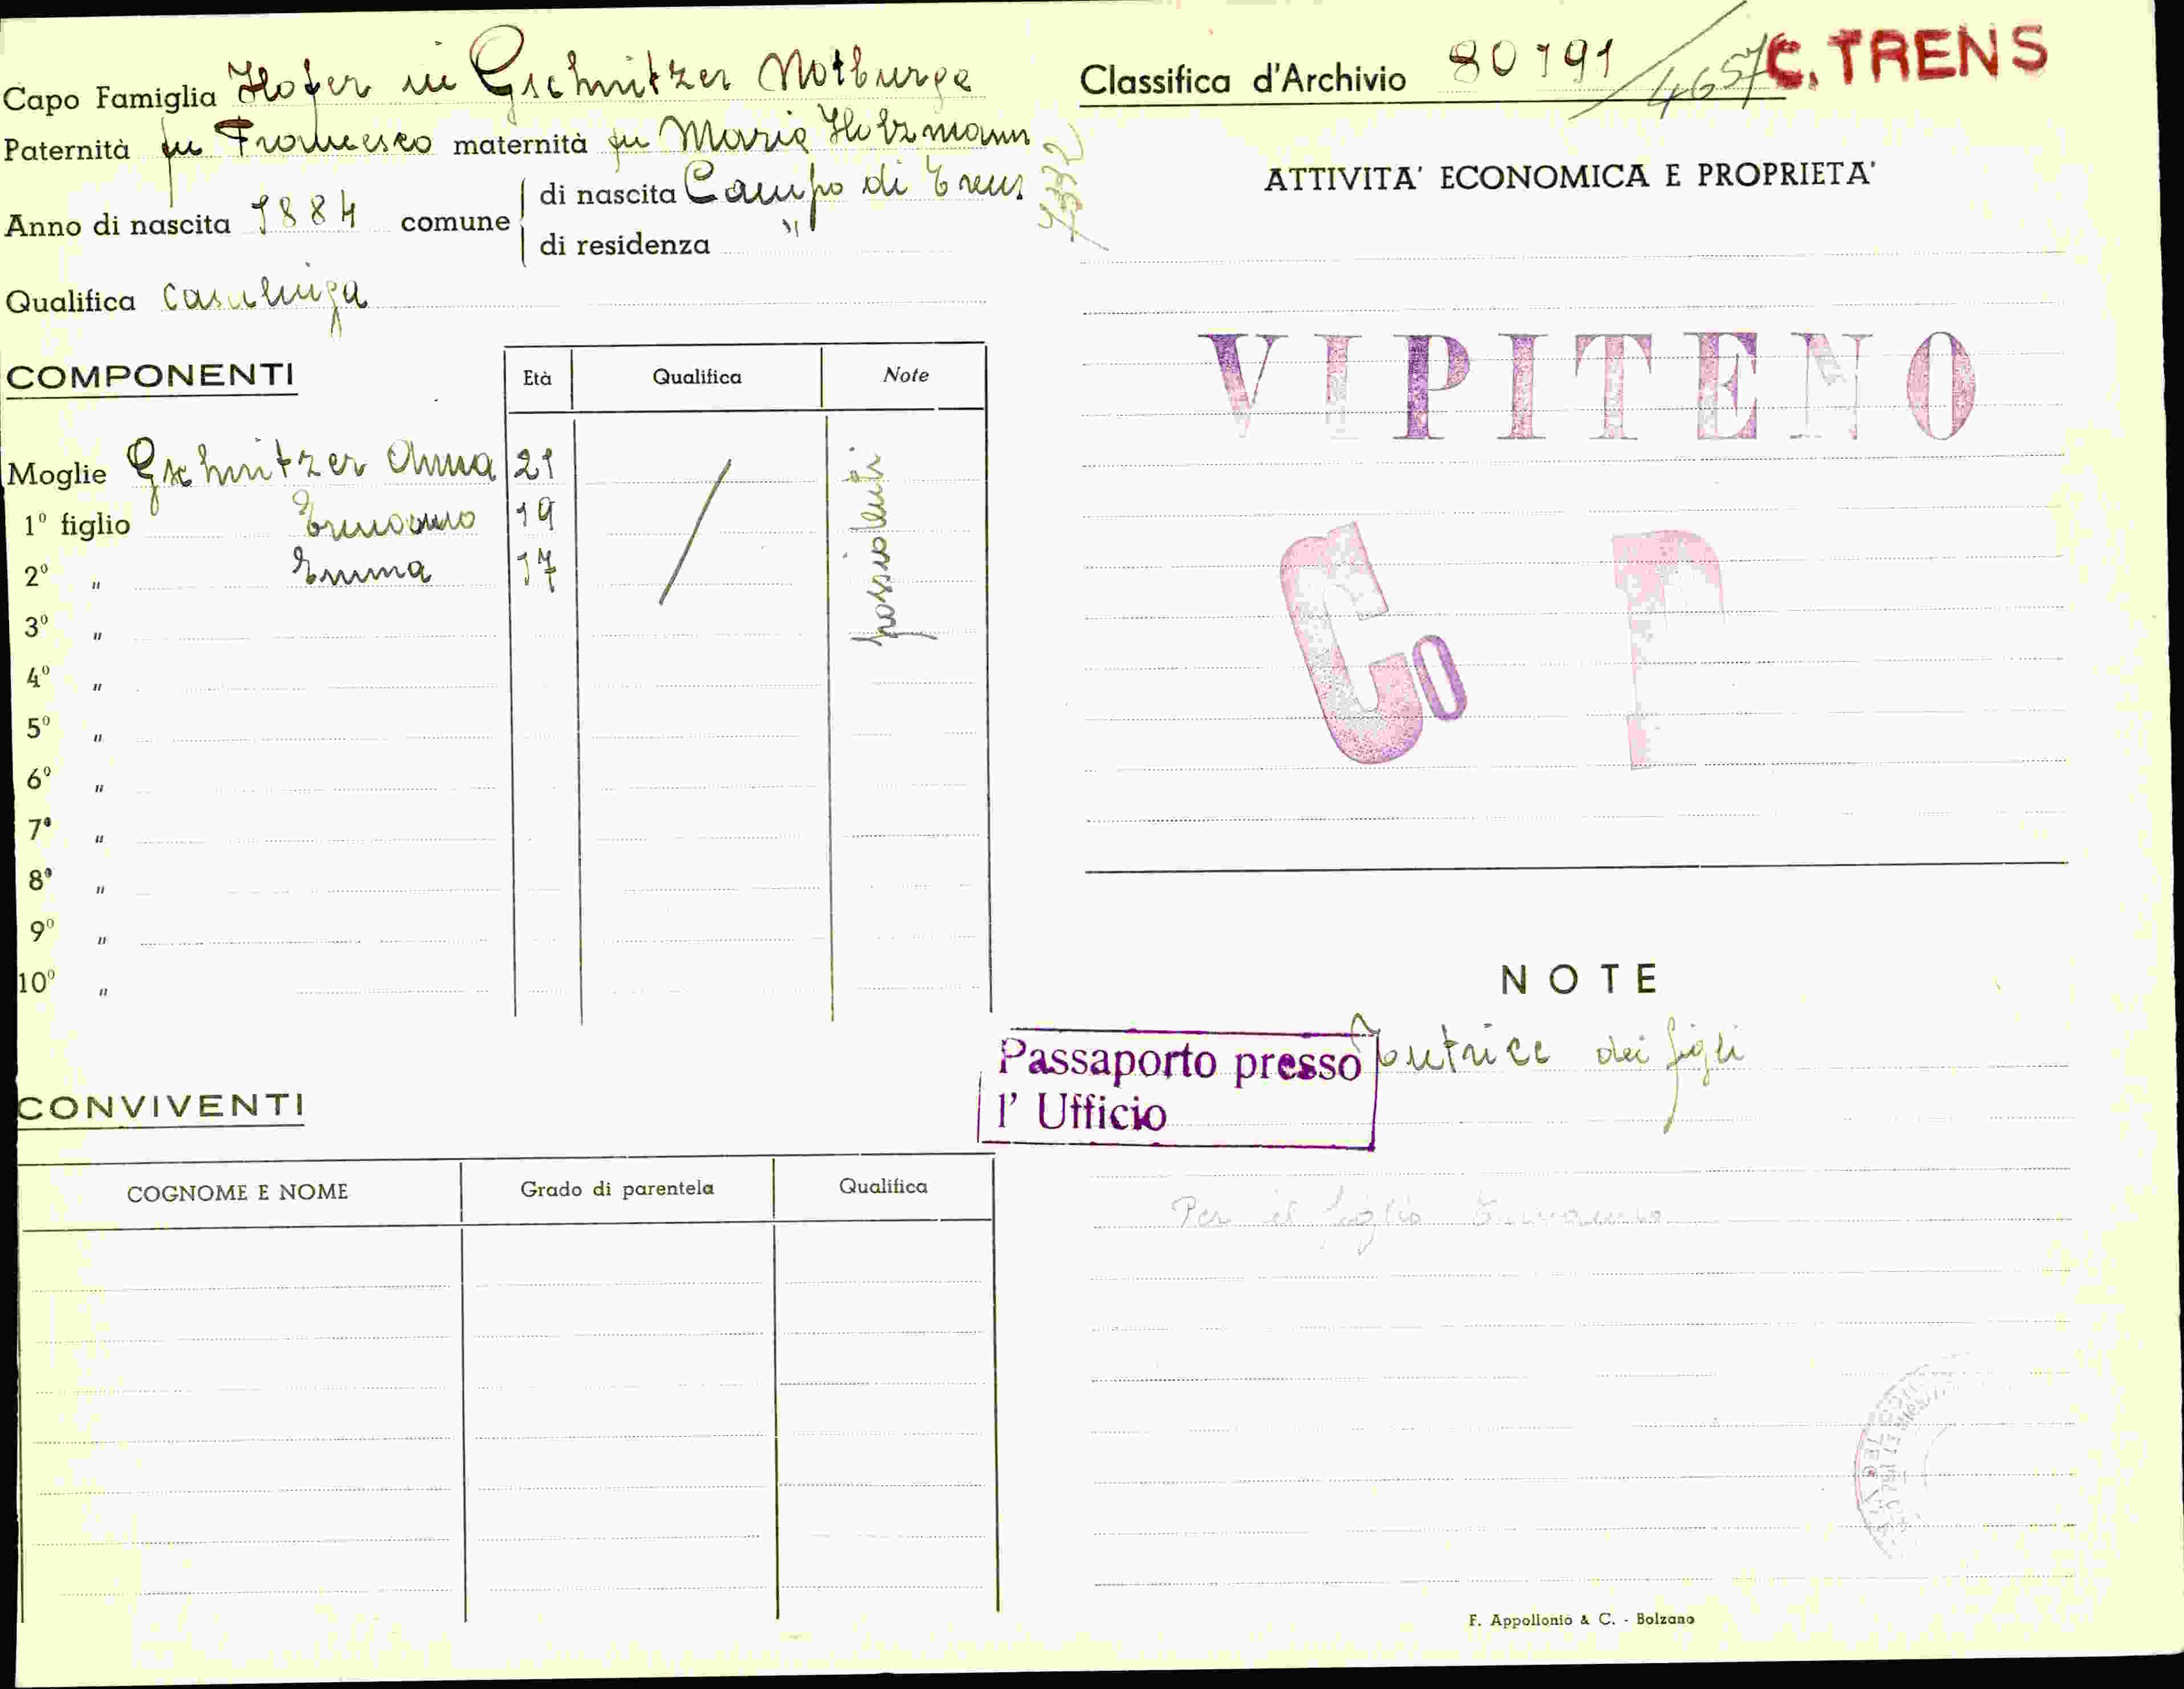 Capo Famiglia Hofer in Gschnitzer Notburga
Paternità fu Francesco maternità fu Maria Holzmann
Anno di nascita 1884 comune di nascita Campo di Trens
di residenza "
Qualifica casalinga
COMPONENTI
Età Qualifica Note
Moglie Gschnitzer Anna 21
1º figlio Ermanno 19
2º " Emma 17
3º "
4º "
5º "
6º "
7º "
8º "
9º "
10º "
possidenti
CONVIVENTI
COGNOME E NOME Grado di parentela Qualifica
Classifica d'Archivio 80191/4657 C. TRENS
7332
ATTIVITA' ECONOMICA E PROPRIETA'
VIPITENO
Co T
NOTE
Passaporto presso
l' Ufficio
tutrice dei figli
Per il figlio Ermanno
F. Appollonio & C. - Bolzano